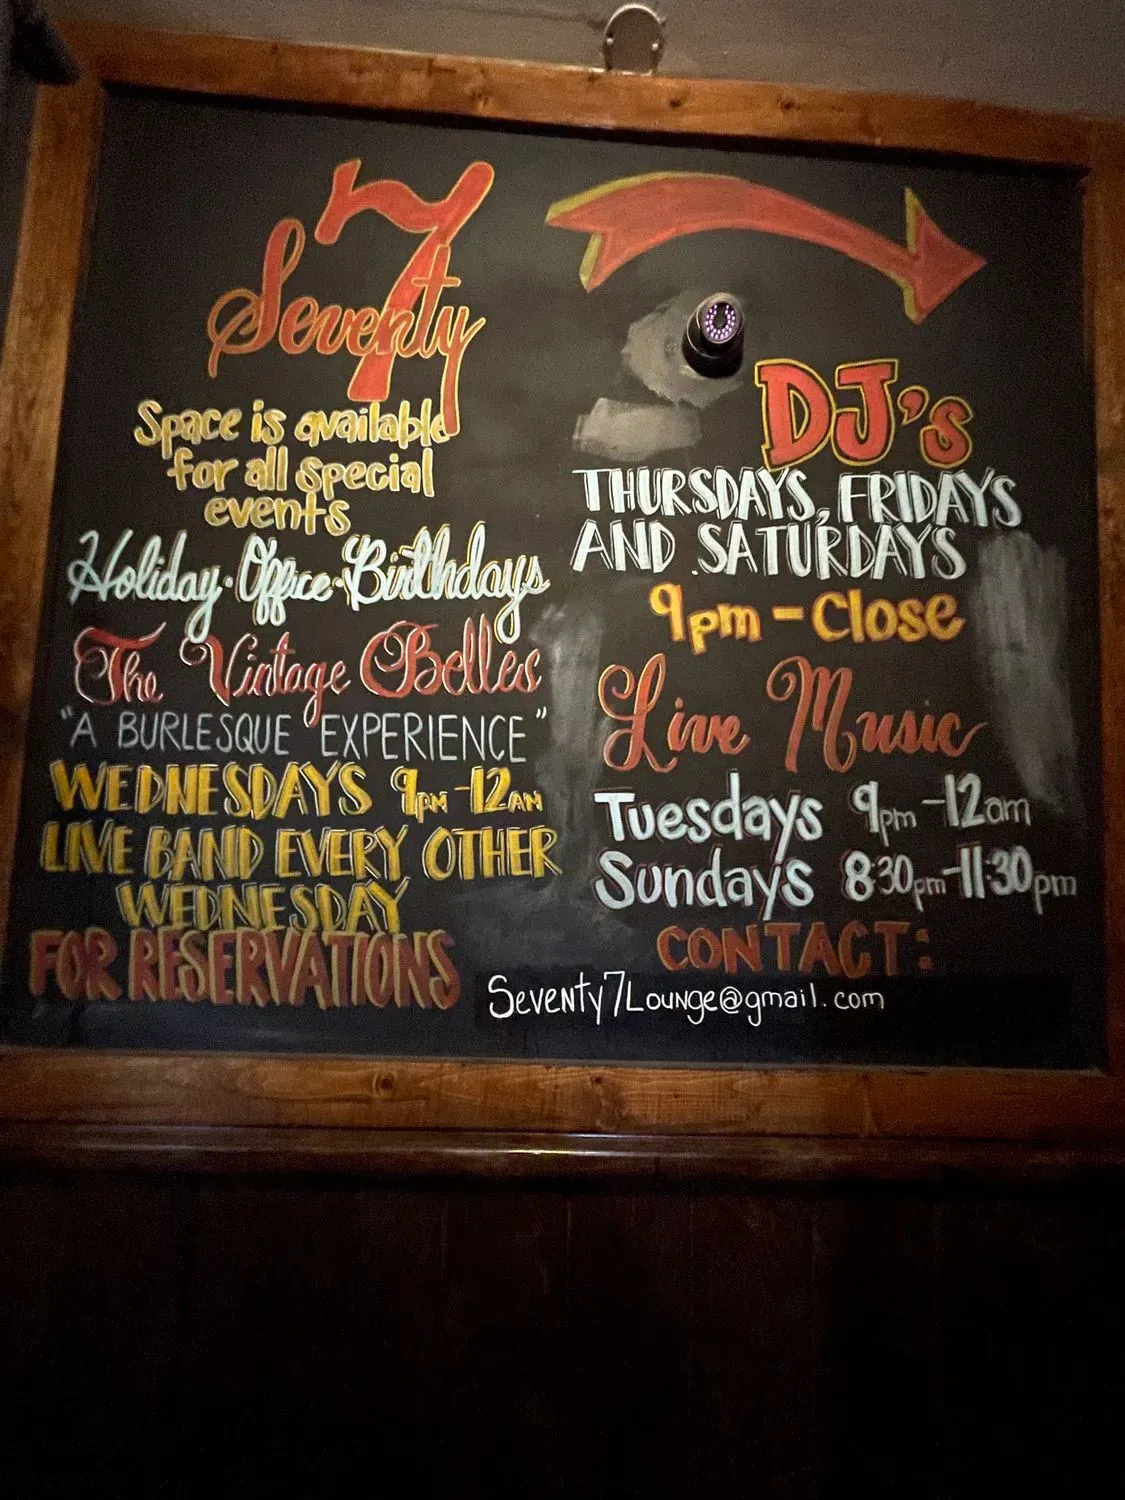 Seventy 7
Space is available
for all special
events
Holiday · Office · Birthdays
The Vintage Belles
"A BURLESQUE EXPERIENCE"
WEDNESDAYS 9PM-12AM
LIVE BAND EVERY OTHER
WEDNESDAY
FOR RESERVATIONS
DJ's
THURSDAYS, FRIDAYS
AND SATURDAYS
9pm - Close
Live Music
Tuesdays 9pm-12am
Sundays 8:30pm-11:30pm
CONTACT:
Seventy7Lounge@gmail.com